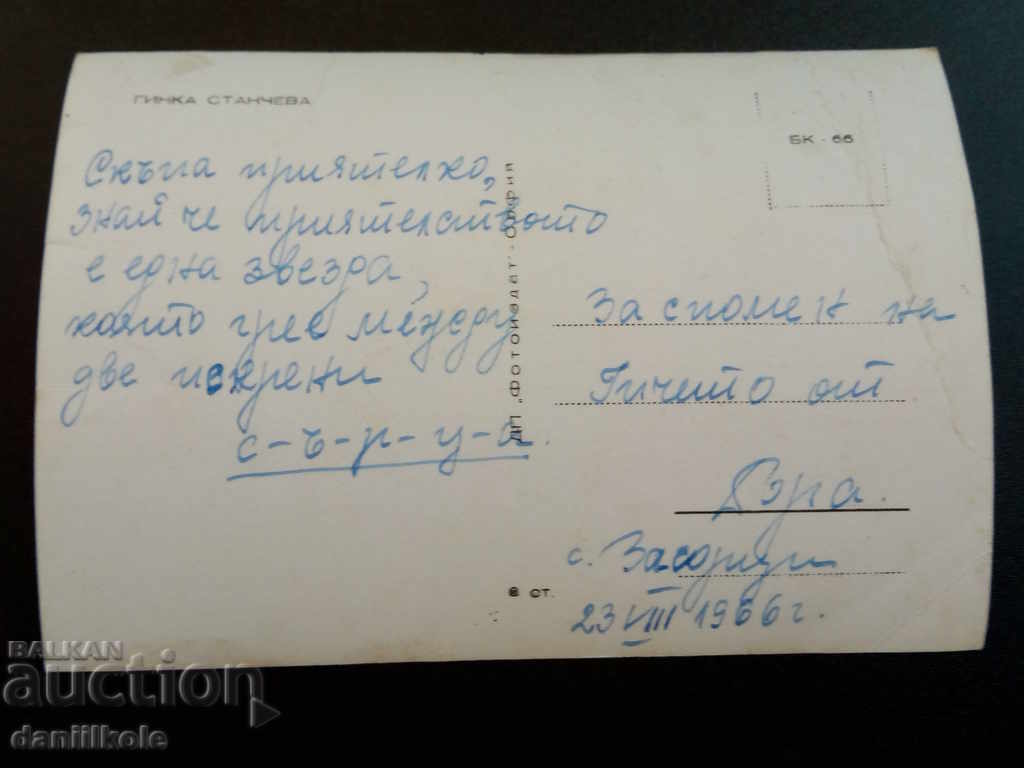 ГИНКА СТАНЧЕВА
БК - 66
Скъпа приятелко,
знай че приятелството
е една звезда,
която грее между
две искрени
с-ъ-р-ц-а.
ДП „Фотоиздат" - София
За спомен на
Гичето от
с.
23 VIII 1966 г.
8 ст.
BALKAN
auction
daniilkole